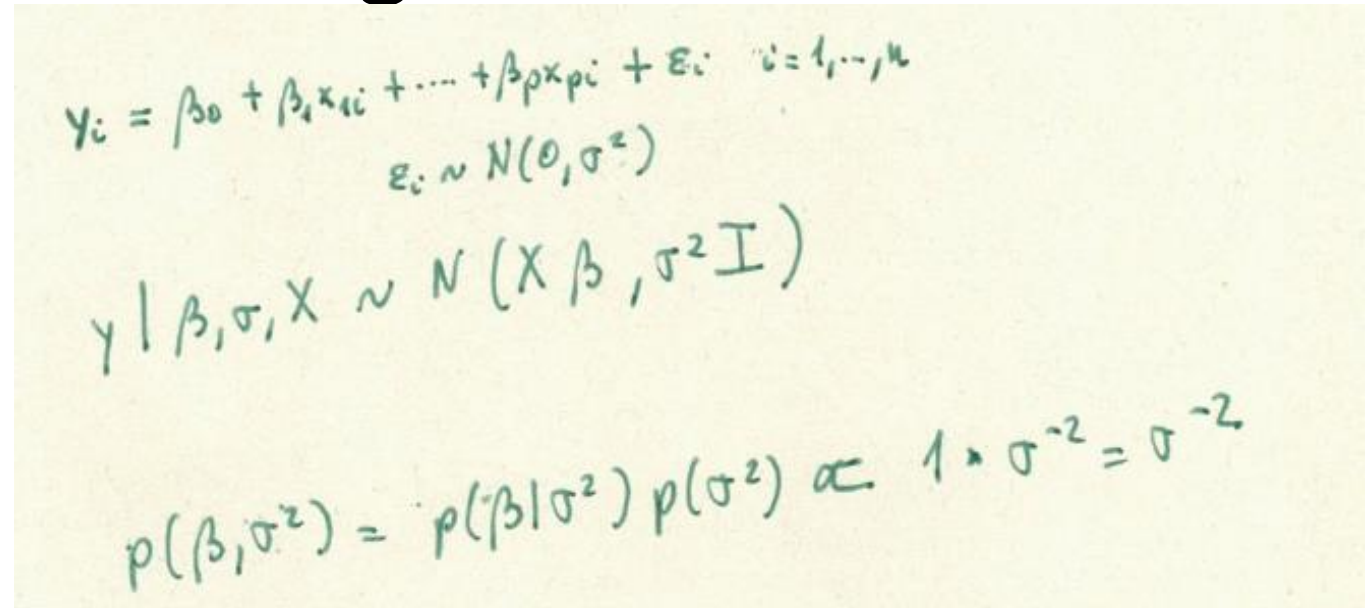 yᵢ = β₀ + β₁x₁ᵢ + ···· + βₚxₚᵢ + εᵢ i = 1,··,n
εᵢ ~ N(0, σ²)
y | β, σ, X ~ N(Xβ, σ²I)
p(β, σ²) = p(β|σ²) p(σ²) ∝ 1 · σ⁻² = σ⁻²